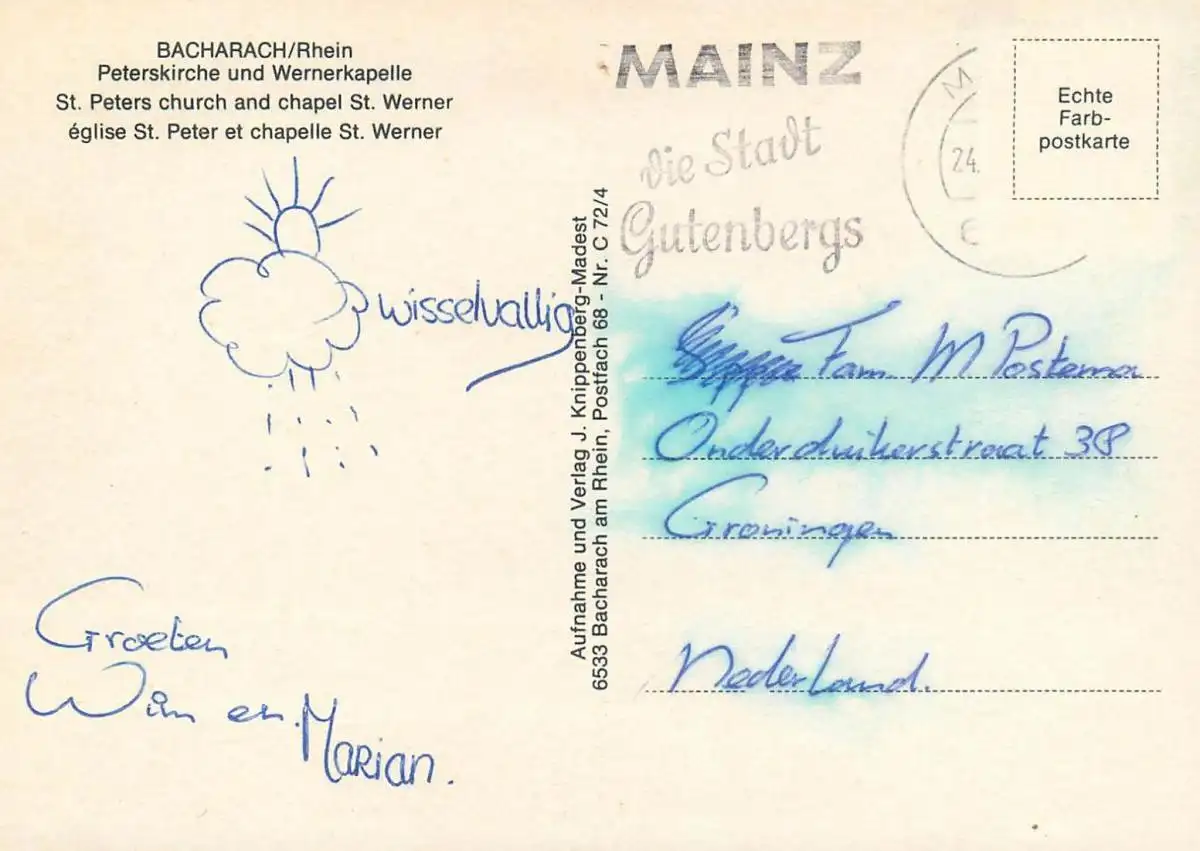 BACHARACH/Rhein
Peterskirche und Wernerkapelle
St. Peters church and chapel St. Werner
église St. Peter et chapelle St. Werner
wisselvallig
Groeten
Wim en.
Marian.
Aufnahme und Verlag J. Knippenberg-Madest
6533 Bacharach am Rhein, Postfach 68 - Nr. C 72/4
MAINZ
die Stadt
Gutenbergs
M
24.
6
Echte
Farb-
postkarte
Fam. M Postema
Onderduikerstraat 38
Groningen
Nederland.